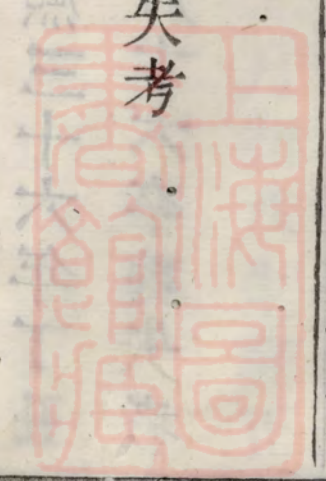 失考
上海圖
書館藏